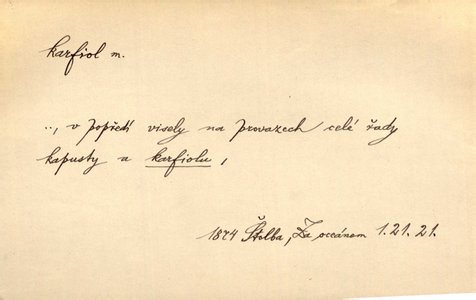 karfiol m.
.., v popředí visely na provazech celé řady
kapusty a karfiolu,
1874 Štolba, Za oceánem 1.21.21.